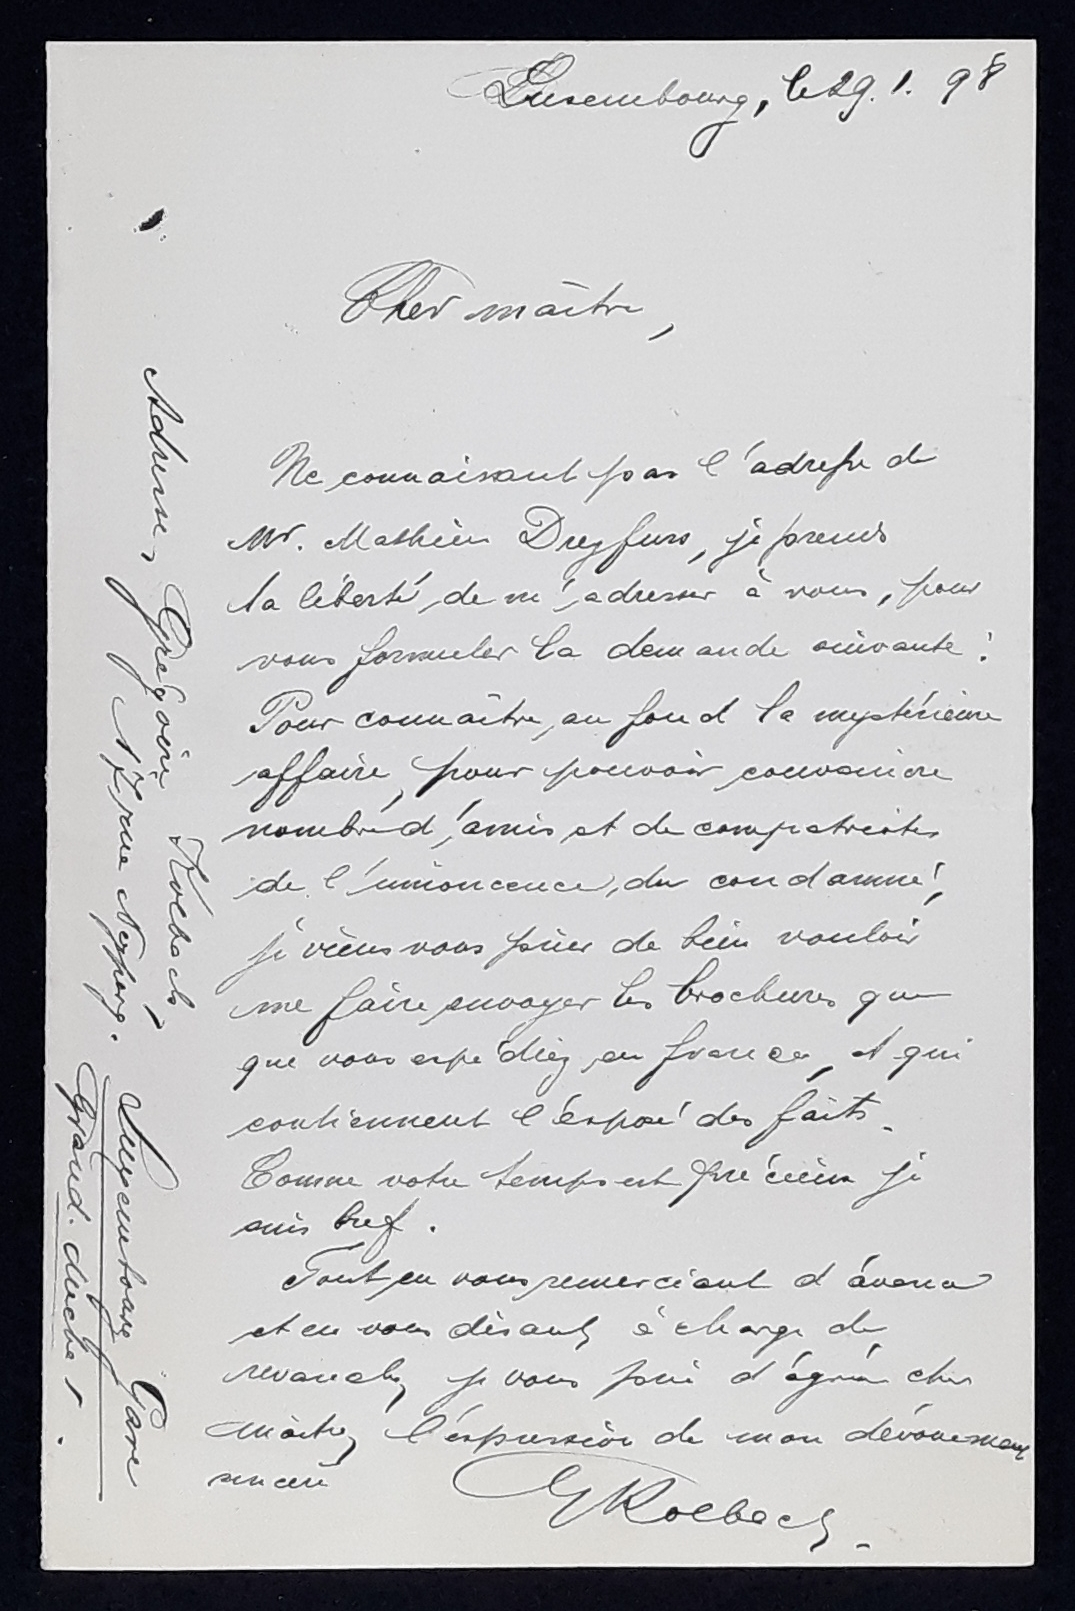 Luxembourg, le 29. 1. 98
Cher maître,
Ne connaissant pas l'adresse de
Mr. Mathieu Dreyfuss, je prends
la liberté de m'adresser à vous, pour
vous formuler la demande suivante :
Pour connaître au fond la mystérieuse
affaire, pour pouvoir convaincre
nombre d'amis et de compatriotes
de l'innoncence, du condamné,
je viens vous prier de bien vouloir
me faire envoyer les brochures que
que vous expédiez en france, et qui
contiennent l'éxposé des faits.
Comme votre temps est précieux je
suis bref.
Tout en vous remerciant d'avance
et en vous disant, à charge de
revanche, je vous prie d'agréer cher
Maître, l'éxpression de mon dévouement
sincère
G Kolbach.
Adresse, Grégoire Kolbach,
17 rue Neyperg.
Luxembourg Gare
Grand. duché.